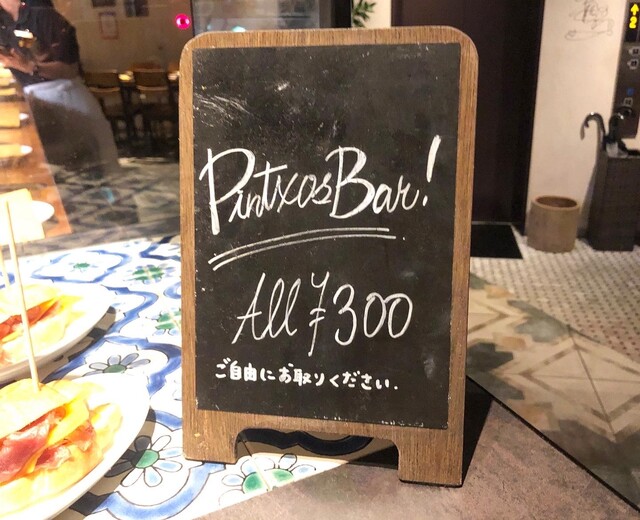 Pintxos Bar!
All ¥300
ご自由にお取りください.